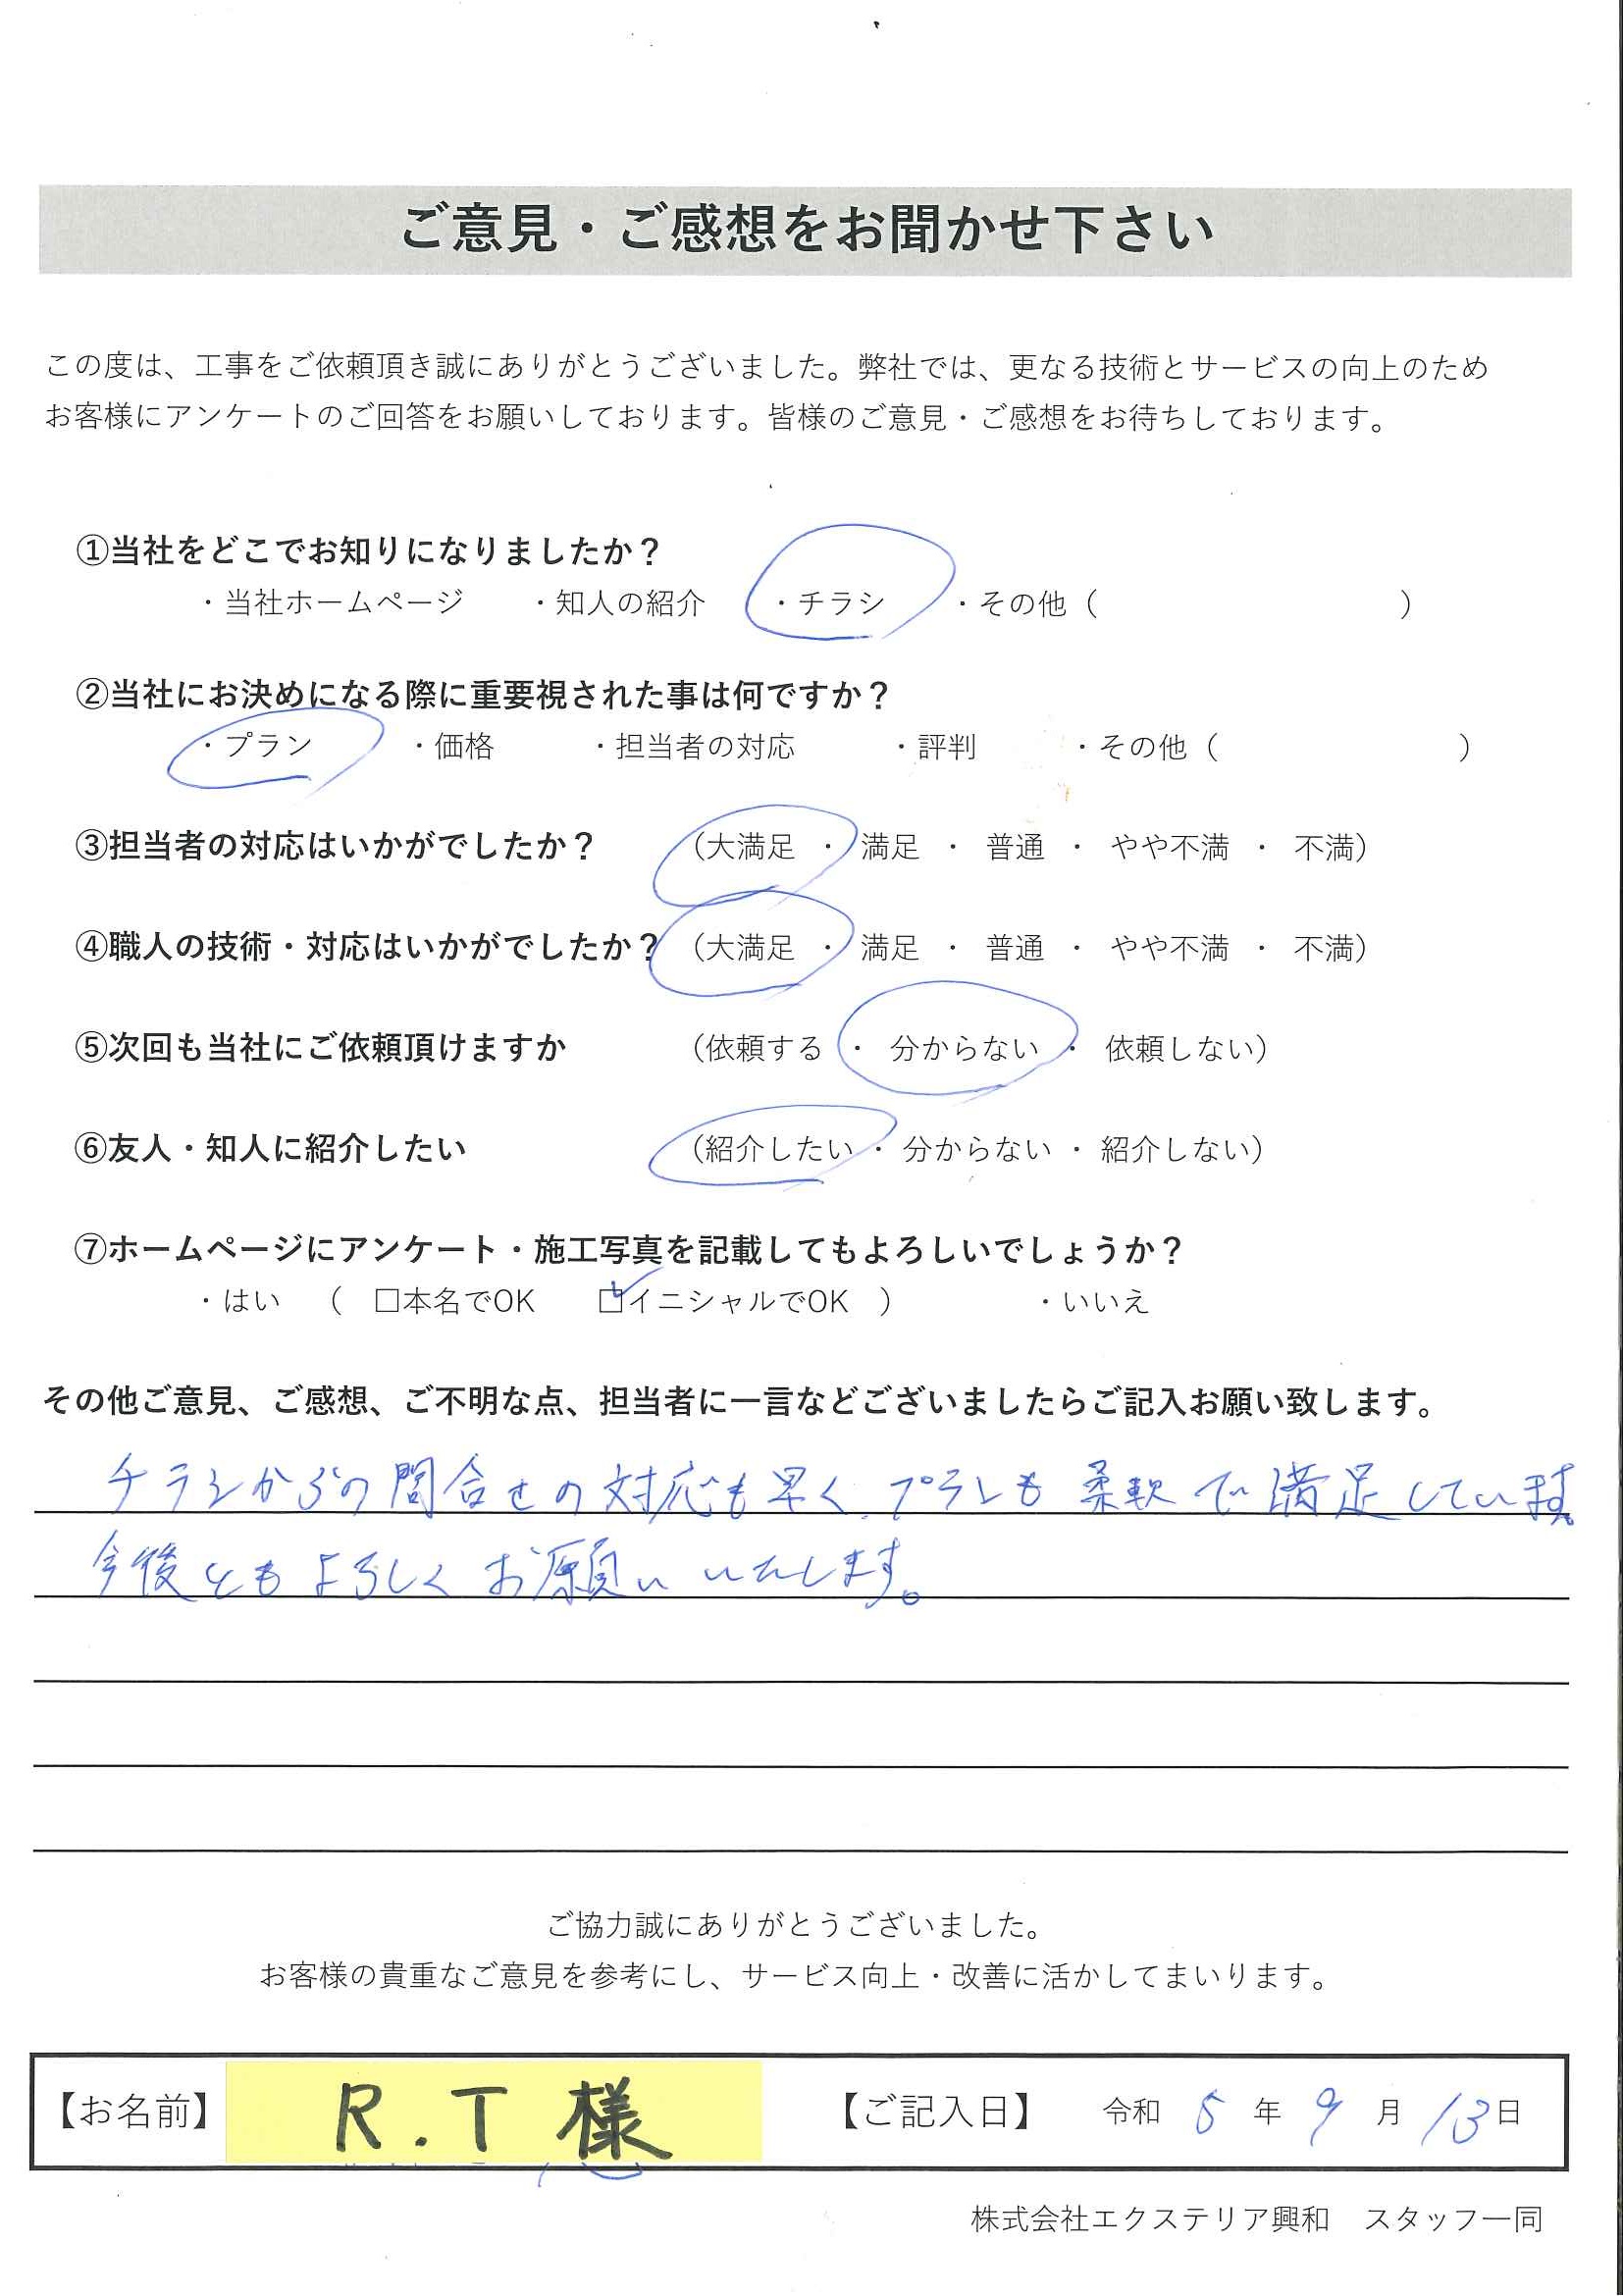 ご意見・ご感想をお聞かせ下さい
この度は、工事をご依頼頂き誠にありがとうございました。弊社では、更なる技術とサービスの向上のため
お客様にアンケートのご回答をお願いしております。皆様のご意見・ご感想をお待ちしております。
①当社をどこでお知りになりましたか？
・当社ホームページ ・知人の紹介 ・チラシ ・その他（ ）
②当社にお決めになる際に重要視された事は何ですか？
・プラン ・価格 ・担当者の対応 ・評判 ・その他（ ）
③担当者の対応はいかがでしたか？ （大満足 ・ 満足 ・ 普通 ・ やや不満 ・ 不満）
④職人の技術・対応はいかがでしたか？ （大満足 ・ 満足 ・ 普通 ・ やや不満 ・ 不満）
⑤次回も当社にご依頼頂けますか （依頼する ・ 分からない ・ 依頼しない）
⑥友人・知人に紹介したい （紹介したい ・ 分からない ・ 紹介しない）
⑦ホームページにアンケート・施工写真を記載してもよろしいでしょうか？
・はい （ □本名でOK ☑イニシャルでOK ） ・いいえ
その他ご意見、ご感想、ご不明な点、担当者に一言などございましたらご記入お願い致します。
チラシからの問合せの対応も早く、プランも柔軟で満足しています。
今後ともよろしくお願いいたします。
ご協力誠にありがとうございました。
お客様の貴重なご意見を参考にし、サービス向上・改善に活かしてまいります。
【お名前】 R.T様 【ご記入日】 令和 5 年 9 月 13 日
株式会社エクステリア興和 スタッフ一同